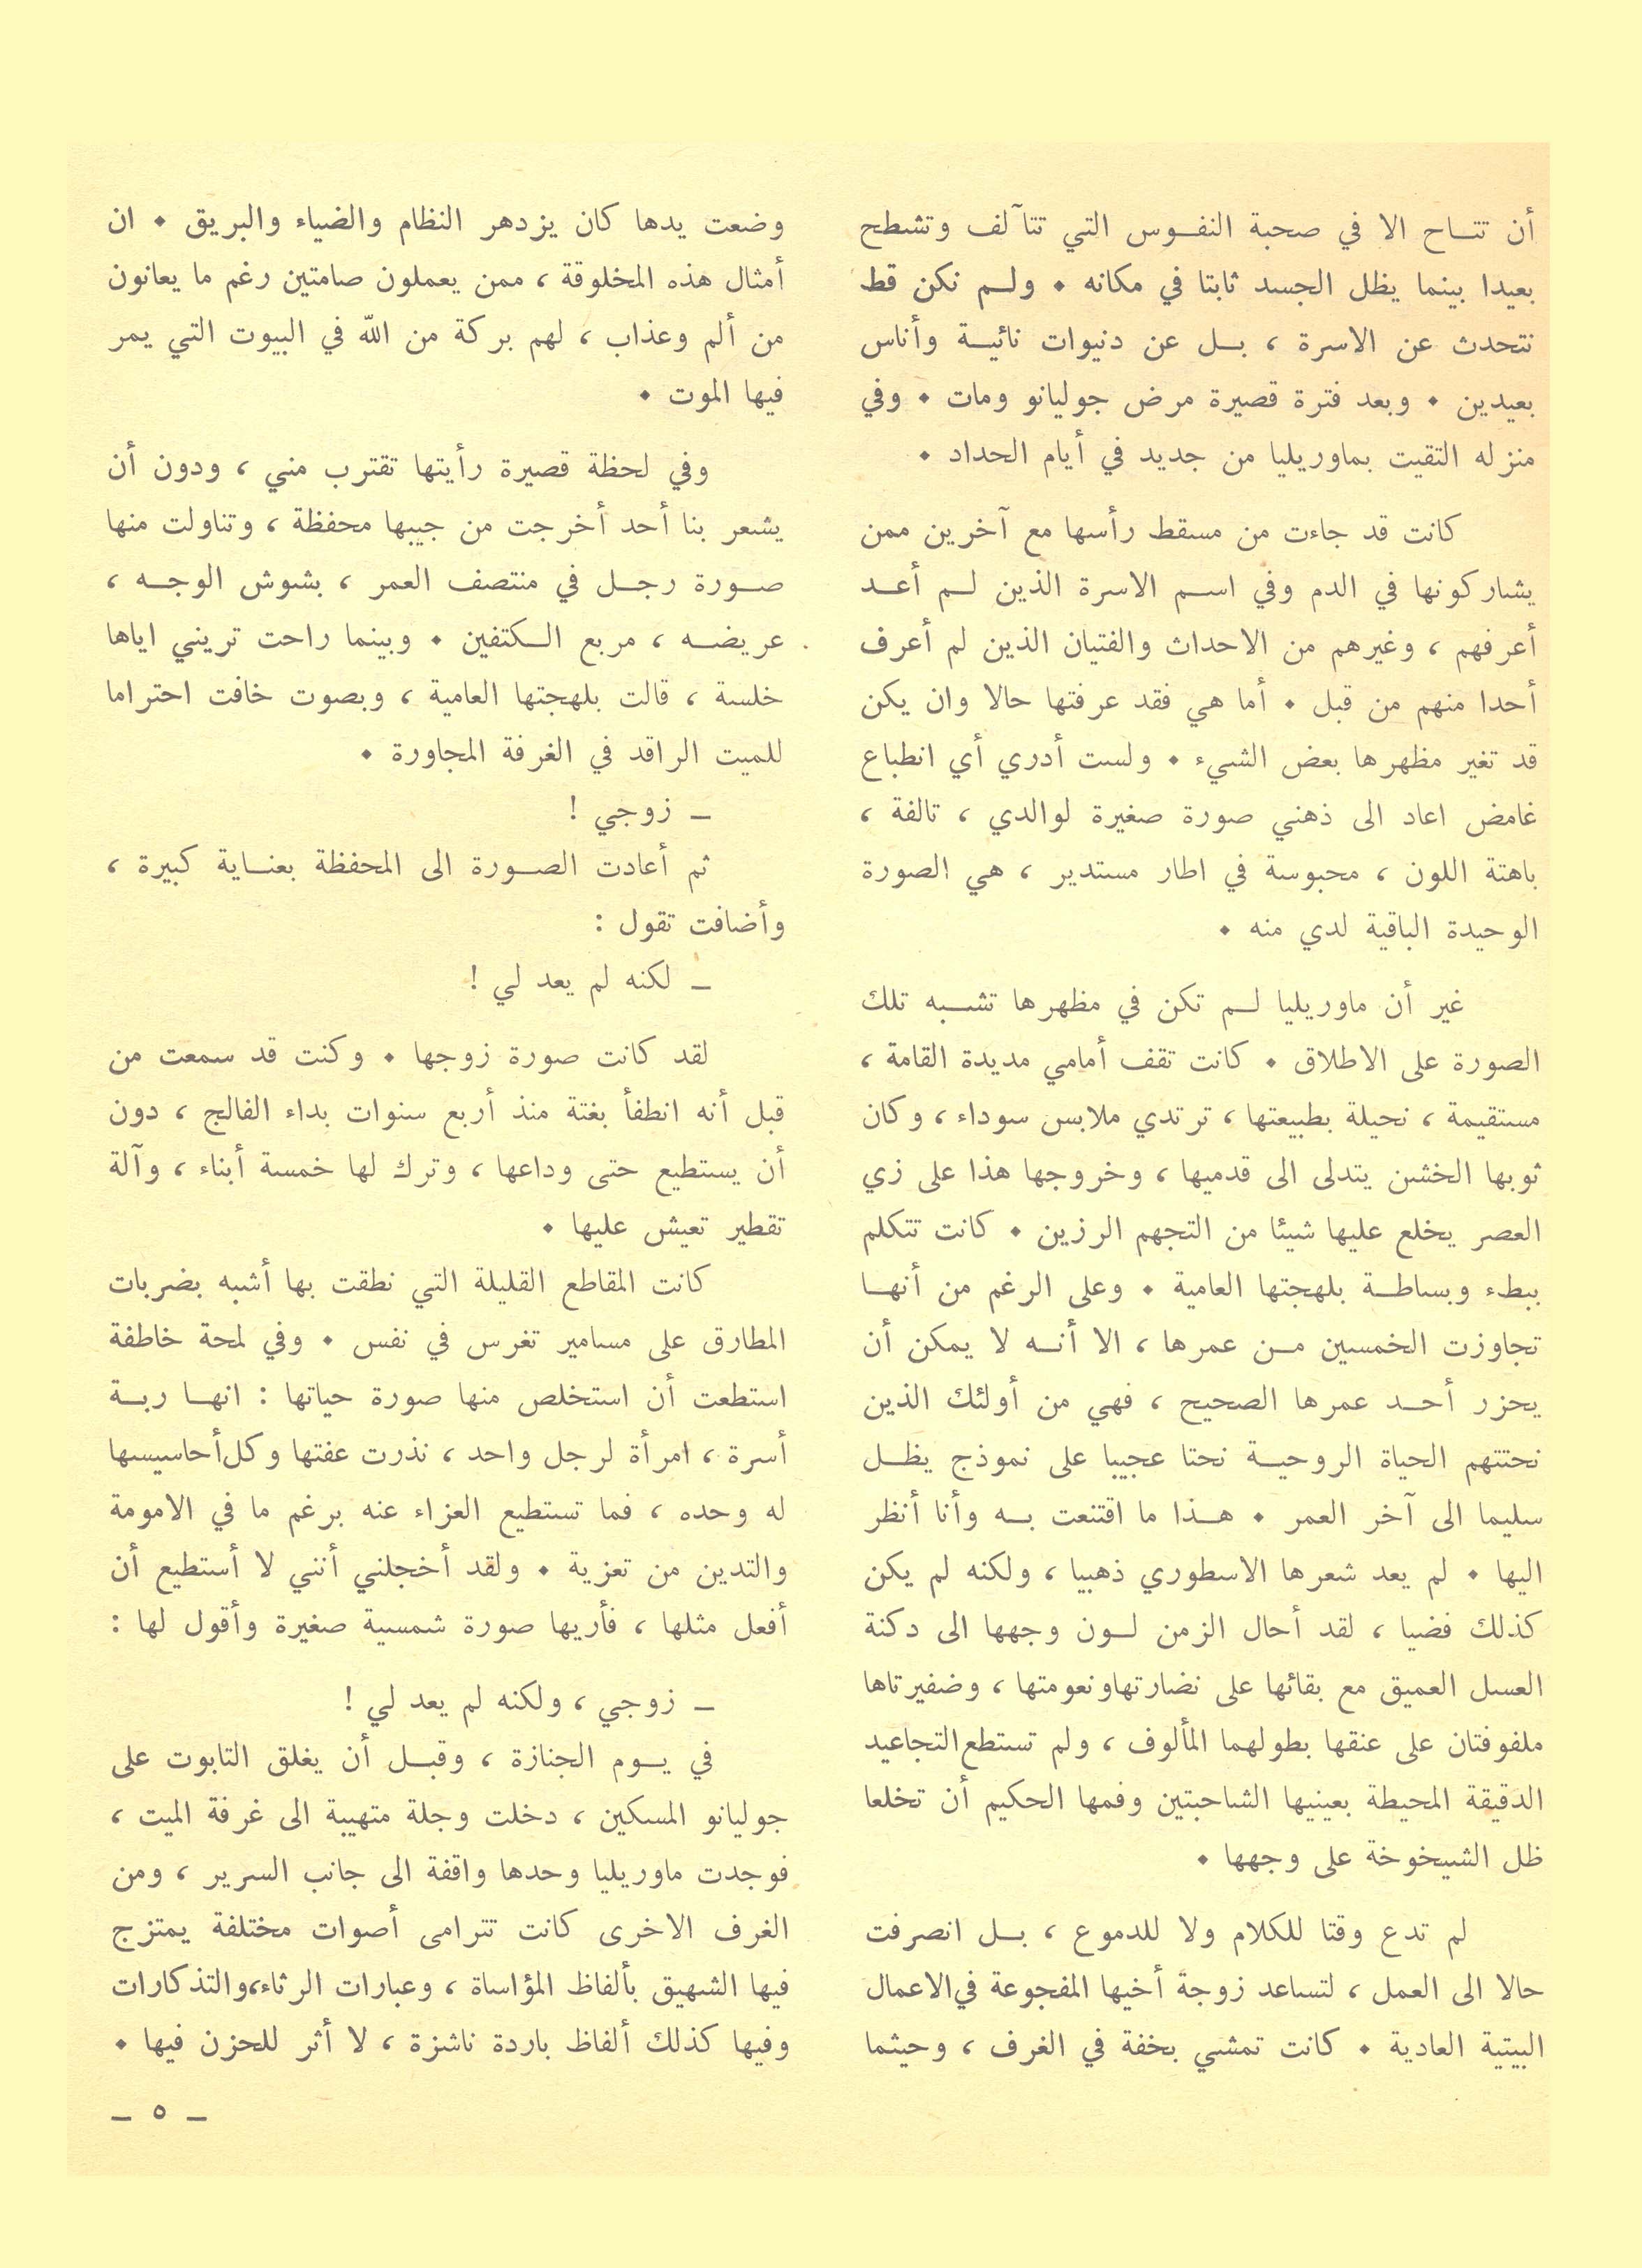 أن تتاح الا في صحبة النفوس التي تتآلف وتشطح
بعيدا بينما يظل الجسد ثابتا في مكانه . ولم نكن قط
نتحدث عن الاسرة ، بل عن دنيوات نائية وأناس
بعيدين . وبعد فترة قصيرة مرض جوليانو ومات . وفي
منزله التقيت بماوريليا من جديد في أيام الحداد .
كانت قد جاءت من مسقط رأسها مع آخرين ممن
يشاركونها في الدم وفي اسم الاسرة الذين لم أعد
أعرفهم ، وغيرهم من الاحداث والفتيان الذين لم أعرف
أحدا منهم من قبل . أما هي فقد عرفتها حالا وان يكن
قد تغير مظهرها بعض الشيء . ولست أدري أي انطباع
غامض اعاد الى ذهني صورة صغيرة لوالدي ، تالفة ،
باهتة اللون ، محبوسة في اطار مستدير ، هي الصورة
الوحيدة الباقية لدي منه .
غير أن ماوريليا لم تكن في مظهرها تشبه تلك
الصورة على الاطلاق . كانت تقف أمامي مديدة القامة ،
مستقيمة ، نحيلة بطبيعتها ، ترتدي ملابس سوداء ، وكان
ثوبها الخشن يتدلى الى قدميها ، وخروجها هذا على زي
العصر يخلع عليها شيئا من التجهم الرزين . كانت تتكلم
ببطء وبساطة بلهجتها العامية . وعلى الرغم من أنها
تجاوزت الخمسين من عمرها ، الا أنه لا يمكن أن
يحزر أحد عمرها الصحيح ، فهي من أولئك الذين
نحتتهم الحياة الروحية نحتا عجيبا على نموذج يظل
سليما الى آخر العمر . هذا ما اقتنعت به وأنا أنظر
اليها . لم يعد شعرها الاسطوري ذهبيا ، ولكنه لم يكن
كذلك فضيا ، لقد أحال الزمن لون وجهها الى دكنة
العسل العميق مع بقائها على نضارتهاونعومتها ، وضفيرتاها
ملفوفتان على عنقها بطولهما المألوف ، ولم تستطع التجاعيد
الدقيقة المحيطة بعينيها الشاحبتين وفمها الحكيم أن تخلعا
ظل الشيخوخة على وجهها .
لم تدع وقتا للكلام ولا للدموع ، بل انصرفت
حالا الى العمل ، لتساعد زوجة أخيها المفجوعة في الاعمال
البيتية العادية . كانت تمشي بخفة في الغرف ، وحيثما
وضعت يدها كان يزدهر النظام والضياء والبريق . ان
أمثال هذه المخلوقة ، ممن يعملون صامتين رغم ما يعانون
من ألم وعذاب ، لهم بركة من الله في البيوت التي يمر
فيها الموت .
وفي لحظة قصيرة رأيتها تقترب مني ، ودون أن
يشعر بنا أحد أخرجت من جيبها محفظة ، وتناولت منها
صورة رجل في منتصف العمر ، بشوش الوجه ،
عريضه ، مربع الكتفين . وبينما راحت تريني اياها
خلسة ، قالت بلهجتها العامية ، وبصوت خافت احتراما
للميت الراقد في الغرفة المجاورة .
ــ زوجي !
ثم أعادت الصورة الى المحفظة بعناية كبيرة ،
وأضافت تقول :
ــ لكنه لم يعد لي !
لقد كانت صورة زوجها . وكنت قد سمعت من
قبل أنه انطفأ بغتة منذ أربع سنوات بداء الفالج ، دون
أن يستطيع حتى وداعها ، وترك لها خمسة أبناء ، وآلة
تقطير تعيش عليها .
كانت المقاطع القليلة التي نطقت بها أشبه بضربات
المطارق على مسامير تغرس في نفس . وفي لمحة خاطفة
استطعت أن استخلص منها صورة حياتها : انها ربة
أسرة ، امرأة لرجل واحد ، نذرت عفتها وكل أحاسيسها
له وحده ، فما تستطيع العزاء عنه برغم ما في الامومة
والتدين من تعزية . ولقد أخجلني أنني لا أستطيع أن
أفعل مثلها ، فأريها صورة شمسية صغيرة وأقول لها :
ــ زوجي ، ولكنه لم يعد لي !
في يوم الجنازة ، وقبل أن يغلق التابوت على
جوليانو المسكين ، دخلت وجلة متهيبة الى غرفة الميت ،
فوجدت ماوريليا وحدها واقفة الى جانب السرير ، ومن
الغرف الاخرى كانت تترامى أصوات مختلفة يمتزج
فيها الشهيق بألفاظ المؤاساة ، وعبارات الرثاء،والتذكارات
وفيها كذلك ألفاظ باردة ناشزة ، لا أثر للحزن فيها .
ــ ٥ ــ